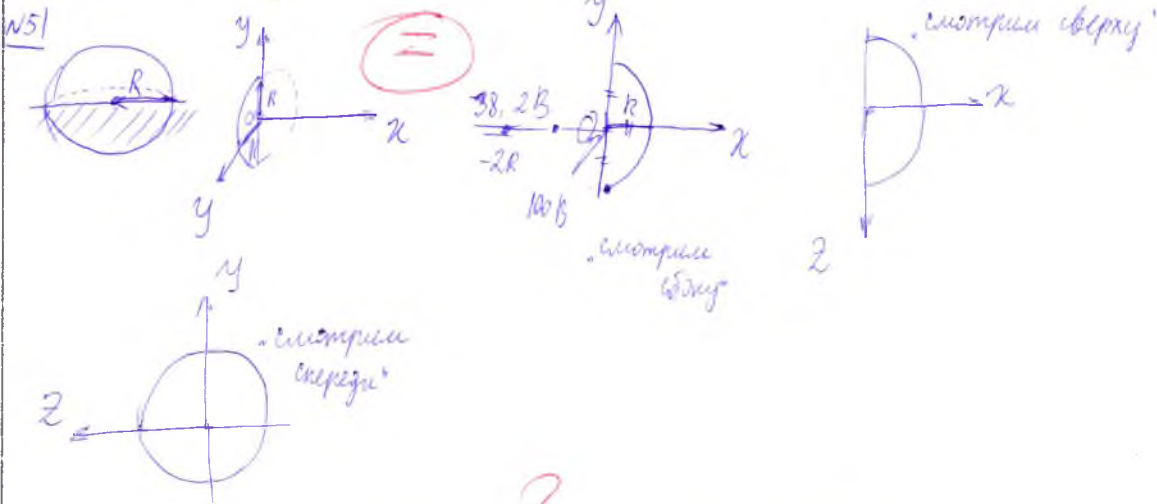 N51
R
y
R
O
x
y
y
38,2В
-2R
O
R
x
100В
„смотрим сбоку"
„смотрим сверху"
x
z
y
„смотрим спереди"
z